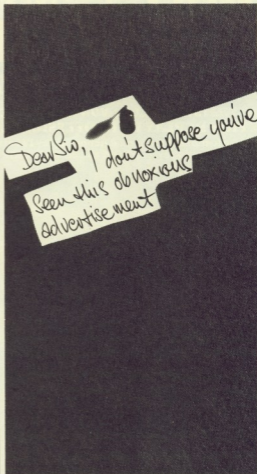 Dear Sir, "I don't suppose you've
seen this obnoxious
advertisement